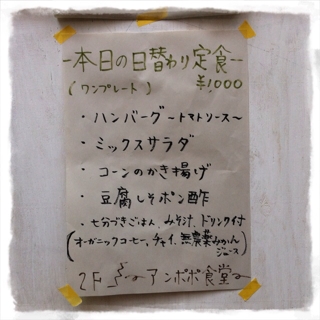 -本日の日替わり定食-
(ワンプレート) ¥1,000
・ハンバーグ～トマトソース～
・ミックスサラダ
・コーンのかき揚げ
・豆腐しそポン酢
・七分づきごはん、みそ汁、ドリンク付
(オーガニックコーヒー、チャイ、無農薬みかんジュース)
2F アンポポ食堂